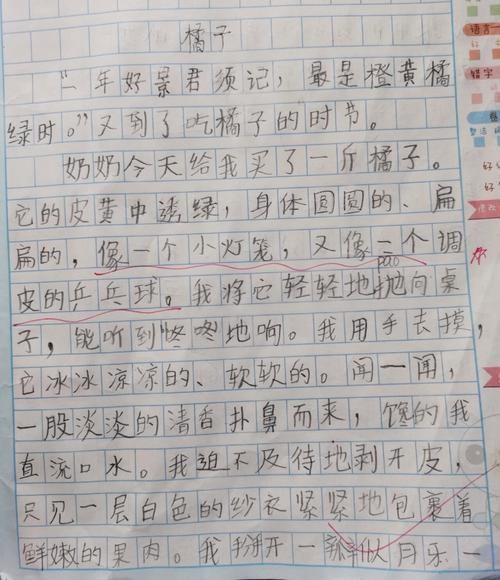 橘子
“一年好景君须记，最是橙黄橘
绿时。”又到了吃橘子的时节。
奶奶今天给我买了一斤橘子。
它的皮黄中透绿，身体圆圆的、扁
扁的，像一个小灯笼，又像一个调
皮的乒乓球。我将它轻轻地抛向桌
pāo
子，能听到咚咚地响。我用手去摸，
它冰冰凉凉的、软软的。闻一闻，
一股淡淡的清香扑鼻而来，馋的我
直流口水。我迫不及待地剥开皮，
只见一层白色的纱衣紧紧地包裹着
鲜嫩的果肉。我掰开一瓣似月乐一
语言
错字